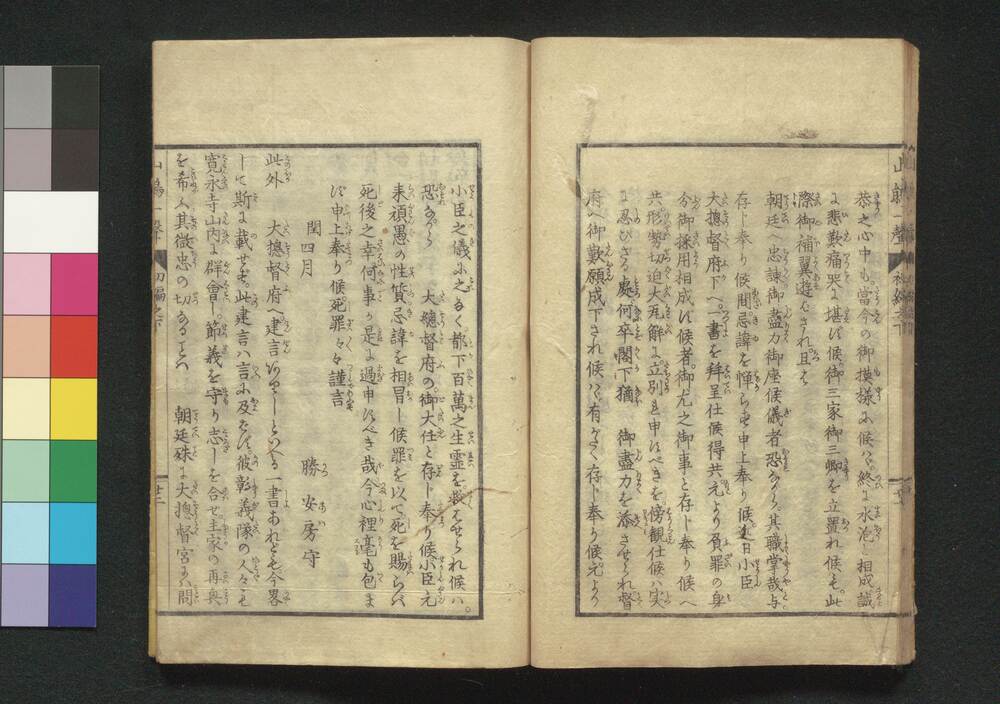 恭之心中も當今の御摸樣に候ハヾ終に水泡と相成誠
に悲歎痛哭に堪ず候御三家御三卿を立置れ候も此
際御補翼遊バされ且ハ
朝廷へ忠諫御盡力御座候儀者恐ながら其職掌哉与
存じ奉り候間忌諱を憚らず申上奉り候近日小臣
大摠督府下へ一書を拜呈仕候得共元より負罪の身
分御採用相成ず候者御尤之御事と存じ奉り候へ
共形勢切迫大瓦解に立別れ申すべきを傍観仕候ハ実
に忍びざる處何卒閣下猶　御盡力を添させられ督
府へ御歎願成下され候ハヾ有がたく存じ奉り候元より
小臣之儀に之なく都下百萬之生霊を救ハせられ候ハ。
恐ながら　大摠督府の御大任と存じ奉り候小臣元
来頑愚の性質忌諱を相冒し候罪を以て死を賜らバ
死後之幸何事か是に過申すべき哉今心裡毫も包ま
ず申上奉り候死罪々々謹言
閏四月　勝安房守
此外　大摠督府へ建言いたしゝといへる一書あれども今畧
して斯に載せず此建言ハ言に及ばず彼彰義隊の人々にも
寛永寺山内に群會し節義を守り志しを合せ主家の再興
を希ふ其微忠の切なることハ　朝廷殊に大摠督宮にハ聞